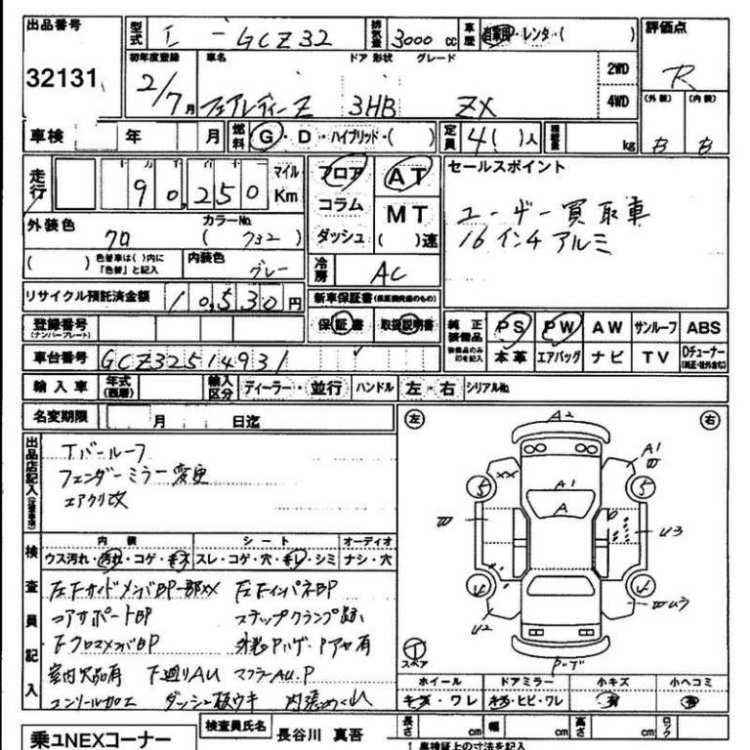 出品番号 32131
型式 E - GCZ32
排気量 3000 cc
車歴 自家用・レンタ・( )
評価点 R
初年度登録 2/7月
車名 フェアレディーZ
ドア 形状 3HB
グレード ZX
2WD
4WD
(外装) B
(内装) B
車検 年 月
燃料 G・D・ハイブリッド・( )
定員 4( )人
積載量 kg
走行 90,250 マイル Km
フロア
コラム
ダッシュ
AT
MT
( )速
セールスポイント
ユーザー買取車
16インチアルミ
外装色 クロ
カラーNo. ( 732 )
( ) 色替車は( )内に「色替」と記入
内装色 グレー
冷房 AC
リサイクル預託済金額 10,530円
新車保証書(有効期限内のもの)
保証書 取扱説明書
登録番号
(ナンバープレート)
純正装備品
PS PW AW サンルーフ ABS
本革 エアバッグ ナビ TV Dチューナー
車台番号 GCZ32514931
輸入車 年式(西暦) 輸入区分 ディーラー・並行 ハンドル 左・右 シリアルNo.
名変期限 月 日迄
出品店記入(注意事項)
Tバールーフ
フェンダーミラー変更
エアクリ改
左 右
A2
A1
W
XX
A1
A
W
U3
U2
W U3
スペア
検査員記入
内装 シート オーディオ
ウス汚れ・汚れ・コゲ・キズ スレ・コゲ・穴・キレ・シミ ナシ・穴
左Fサイドメンバ BP一部XX 左FインパネBP
コアサポートBP ステップクランプ跡
FクロスメンバBP
室内欠品有 下廻りAU マフラーAU.P
コンソール加工 ダッシュ板ウキ 内張めくれ
ホイール ドアミラー 小キズ 小ヘコミ
キズ・ワレ キズ・ヒビ・ワレ 有 有
乗ユNEXコーナー
検査員氏名 長谷川 真吾
長さ cm 幅 cm 高さ cm ロック
! 車検証上の寸法を記入